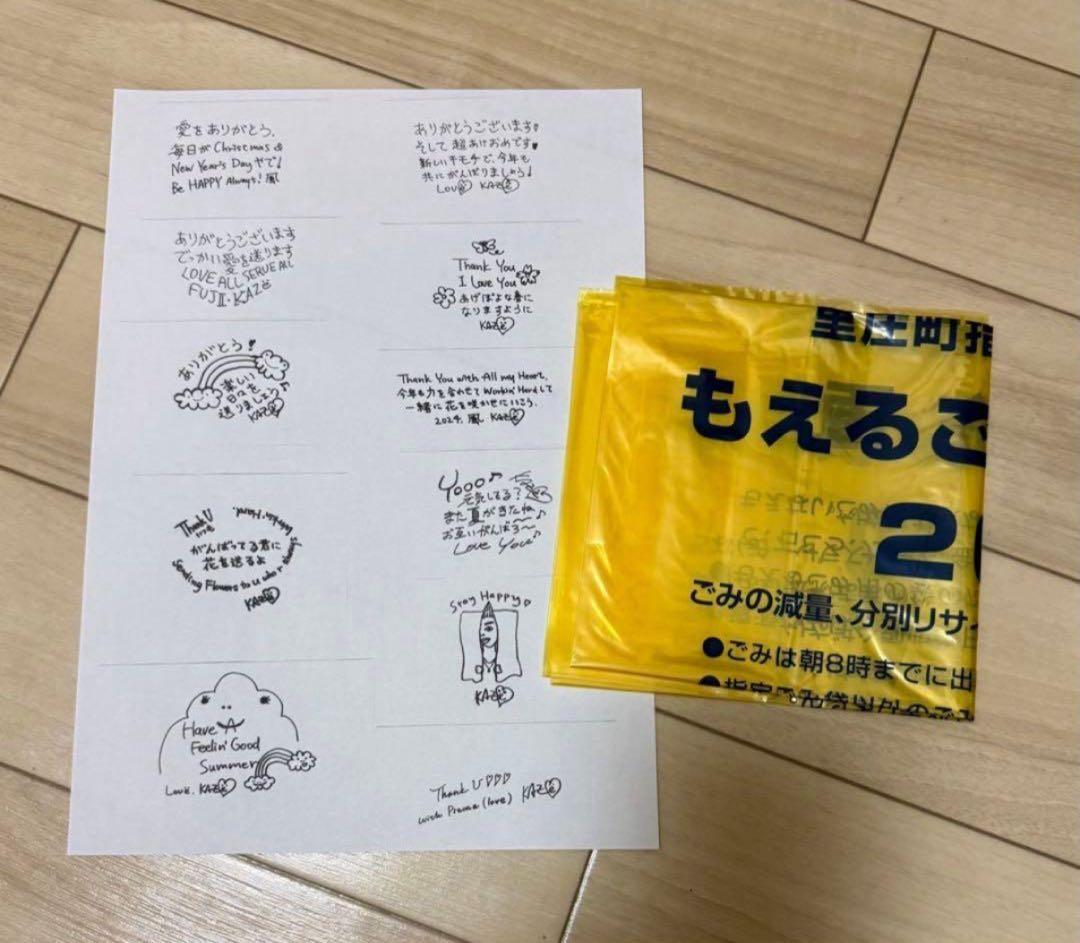 愛をありがとう、
毎日がChristmas &
New Year's Dayやで!
Be HAPPY Always! 風
ありがとうございます
でっかい愛を送ります
LOVE ALL SERVE ALL
FUJII・KAZE
ありがとう!
楽しい
日々を
送りましょう♪
KAZE
Thank U
がんばってる君に
花を送るよ
Sending Flowers to u who r always workin' Hard.
KAZE
Have A
Feelin' Good
Summer
Love. KAZE
ありがとうございます♡
そして超あけおめです♥
新しいキモチで、今年も
共にがんばりましょう!
LOVE KAZE
Thank You
I Love You
あげぽよな春に
なりますように
KAZE
Thank You with All my Heart,
今年も力を合わせてWorkin' Hardして
一緒に花を咲かせにいこう、
2024, 風 KAZE
Yooo♪ KAZE
元気してる?
また夏がきたね
お互いがんばろ〜♪
Love You♪
Stay Happy♡
KAZE
Thank U♡♡♡
with Prema (love) KAZE
里庄町指
もえるご
2
ごみの減量、分別リサイ
●ごみは朝8時までに出
●指定ごみ袋以外のごみ